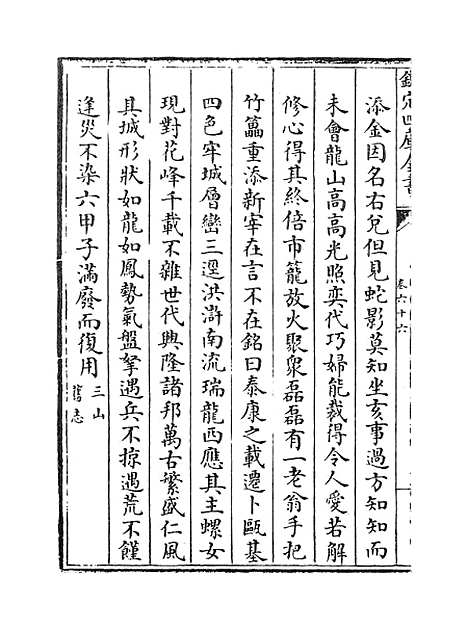 欽定四庫全書
卷六十六
添金因名右兌但見蛇影莫知坐亥事過方知知而
未會龍山高高光照奕代巧婦能裁得令人愛若解
修心得其終倍市籠放火聚衆磊磊有一老翁手把
竹籚重添新宰在言不在銘曰泰康之載遷卜甌基
四色牢城層巒三逕洪濤南流瑞龍西應其主螺女
現對花峰千載不雜世代興隆諸邦萬古繁盛仁風
具城形狀如龍如鳳勢氣盤拏遇兵不掠遇荒不饉
逢災不染六甲子滿廢而復用三山
舊志